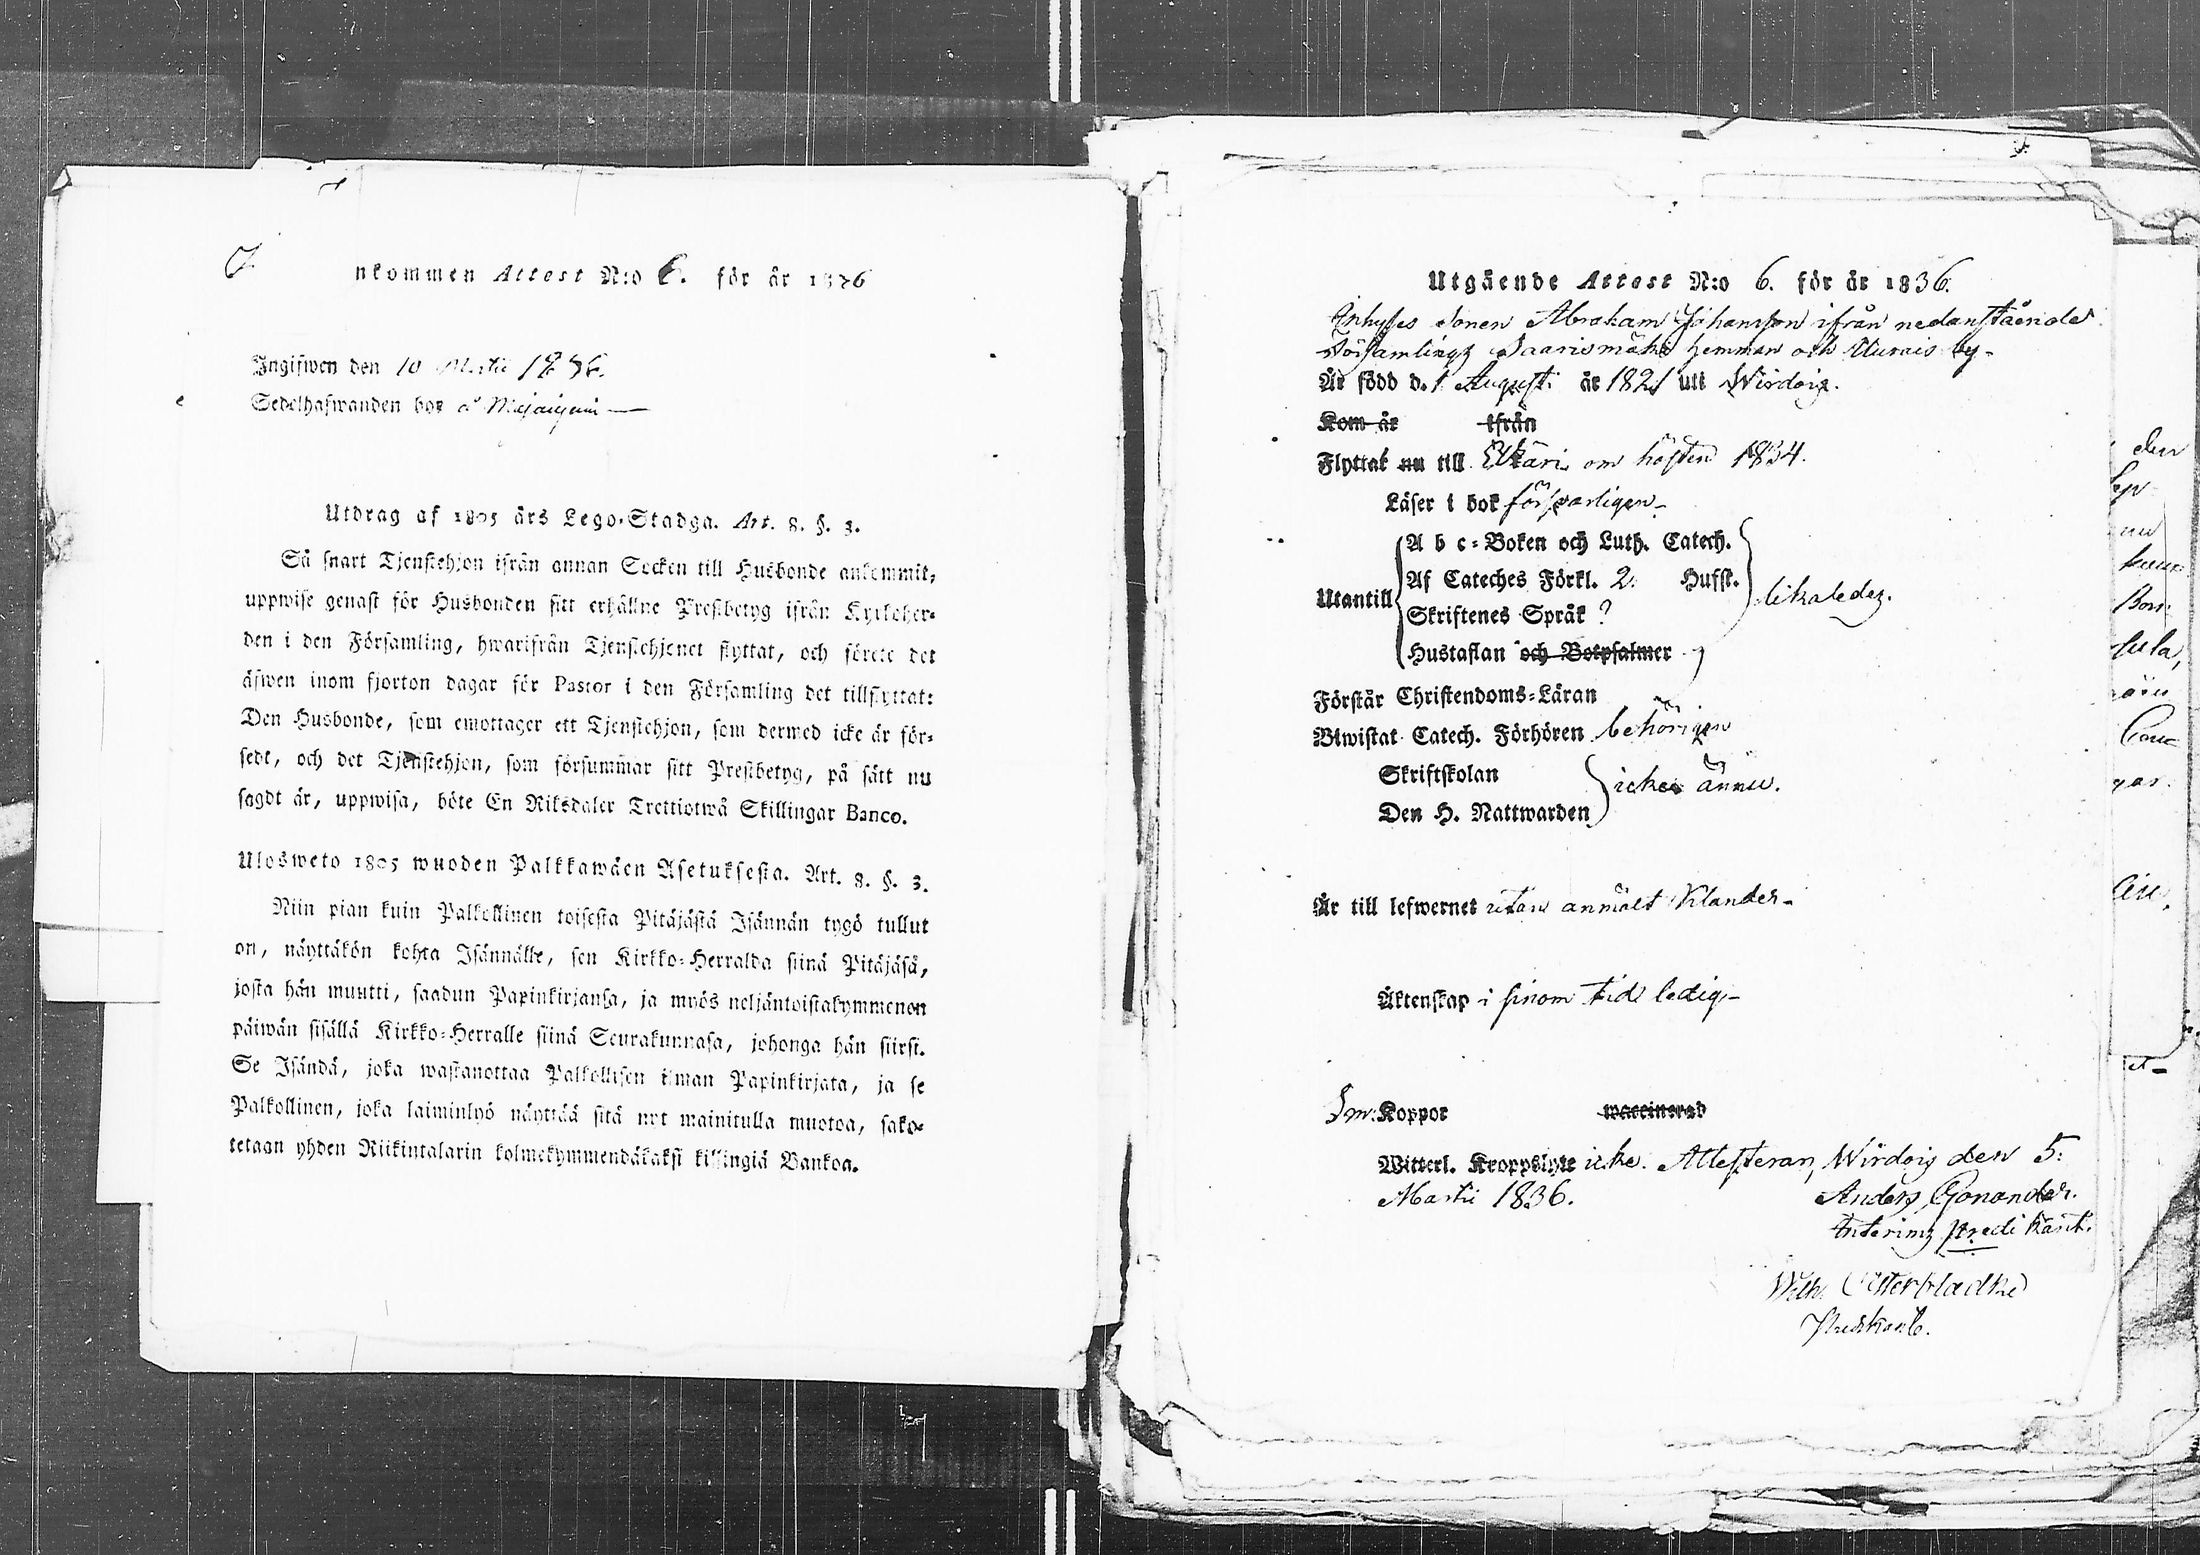 Inkommen Attest N:o 6. för år 1836
Ingifwen den 10 Martii 1836.
Sedelhafwanden bor å
Utdrag af 1805 års Lego-Stadga. Art. 8. §. 3.
Så snart Tjenstehjon ifrån annan Socken till Husbonde ankommit,
uppwise genast för Husbonden sitt erhållne Prestbetyg ifrån Kyrkoher-
den i den Församling, hwarifrån Tjenstehjonet flyttat, och förete det
äfwen inom fjorton dagar för Pastor i den Församling det tillflyttat:
Den Husbonde, som emottager ett Tjenstehjon, som dermed icke är för-
sedt, och det Tjenstehjon, som försummar sitt Prestbetyg, på sätt nu
sagdt är, uppwisa, böte En Riksdaler Trettiotwå Skillingar Banco.
Ulosweto 1805 wuoden Palkkawäen Asetuksesta. Art. 8. §. 3.
Niin pian kuin Palkollinen toisesta Pitäjästä Isännän tygö tullut
on, näyttäkön kohta Isännälle, sen Kirkko-Herralda siinä Pitäjäsä,
josta hän muutti, saadun Papinkirjansa, ja myös neljäntoistakymmenen
päiwän sisällä Kirkko-Herralle siinä Seurakunnasa, johonga hän siirst.
Se Isändä, joka wastanottaa Palkollisen ilman Papinkirjata, ja se
Palkollinen, joka laiminlyö näyttää sitä nyt mainitulla muotoa, sako-
tetaan yhden Riikintalarin kolmekymmendäkaksi killingiä Bankoa.
Utgående Attest N:o 6. för år 1836.
Inhyses sonen Abraham Johansson ifrån nedanstående
Församlings Saarismäki hemman och by-
Är född d. 1 Augusti år 1821 uti Wirdois.
Kom år ifrån
Flyttat nu till Etseri om hösten 1834.
Läser i bok försvarligen-
A b c-Boken och Luth. Catech.
Af Cateches Förkl. 2. Hufst.
Utantill likaledes.
Skriftenes Språk ?
Hustaflan och Botpsalmer
Förstår Christendoms-Läran
Biwistat Catech. Förhören behörigen
Skriftskolan
icke ännu.
Den H. Nattwarden
Är till lefwernet utan anmält klander-
Äktenskap i sinom tid ledig-
Koppor waccinerad
Witterl. Kroppslyte icke. Attesteran, Wirdois den 5:
Martii 1836. Anders Gonander.
Interims predikant.
Wilh.
Predikant.
den